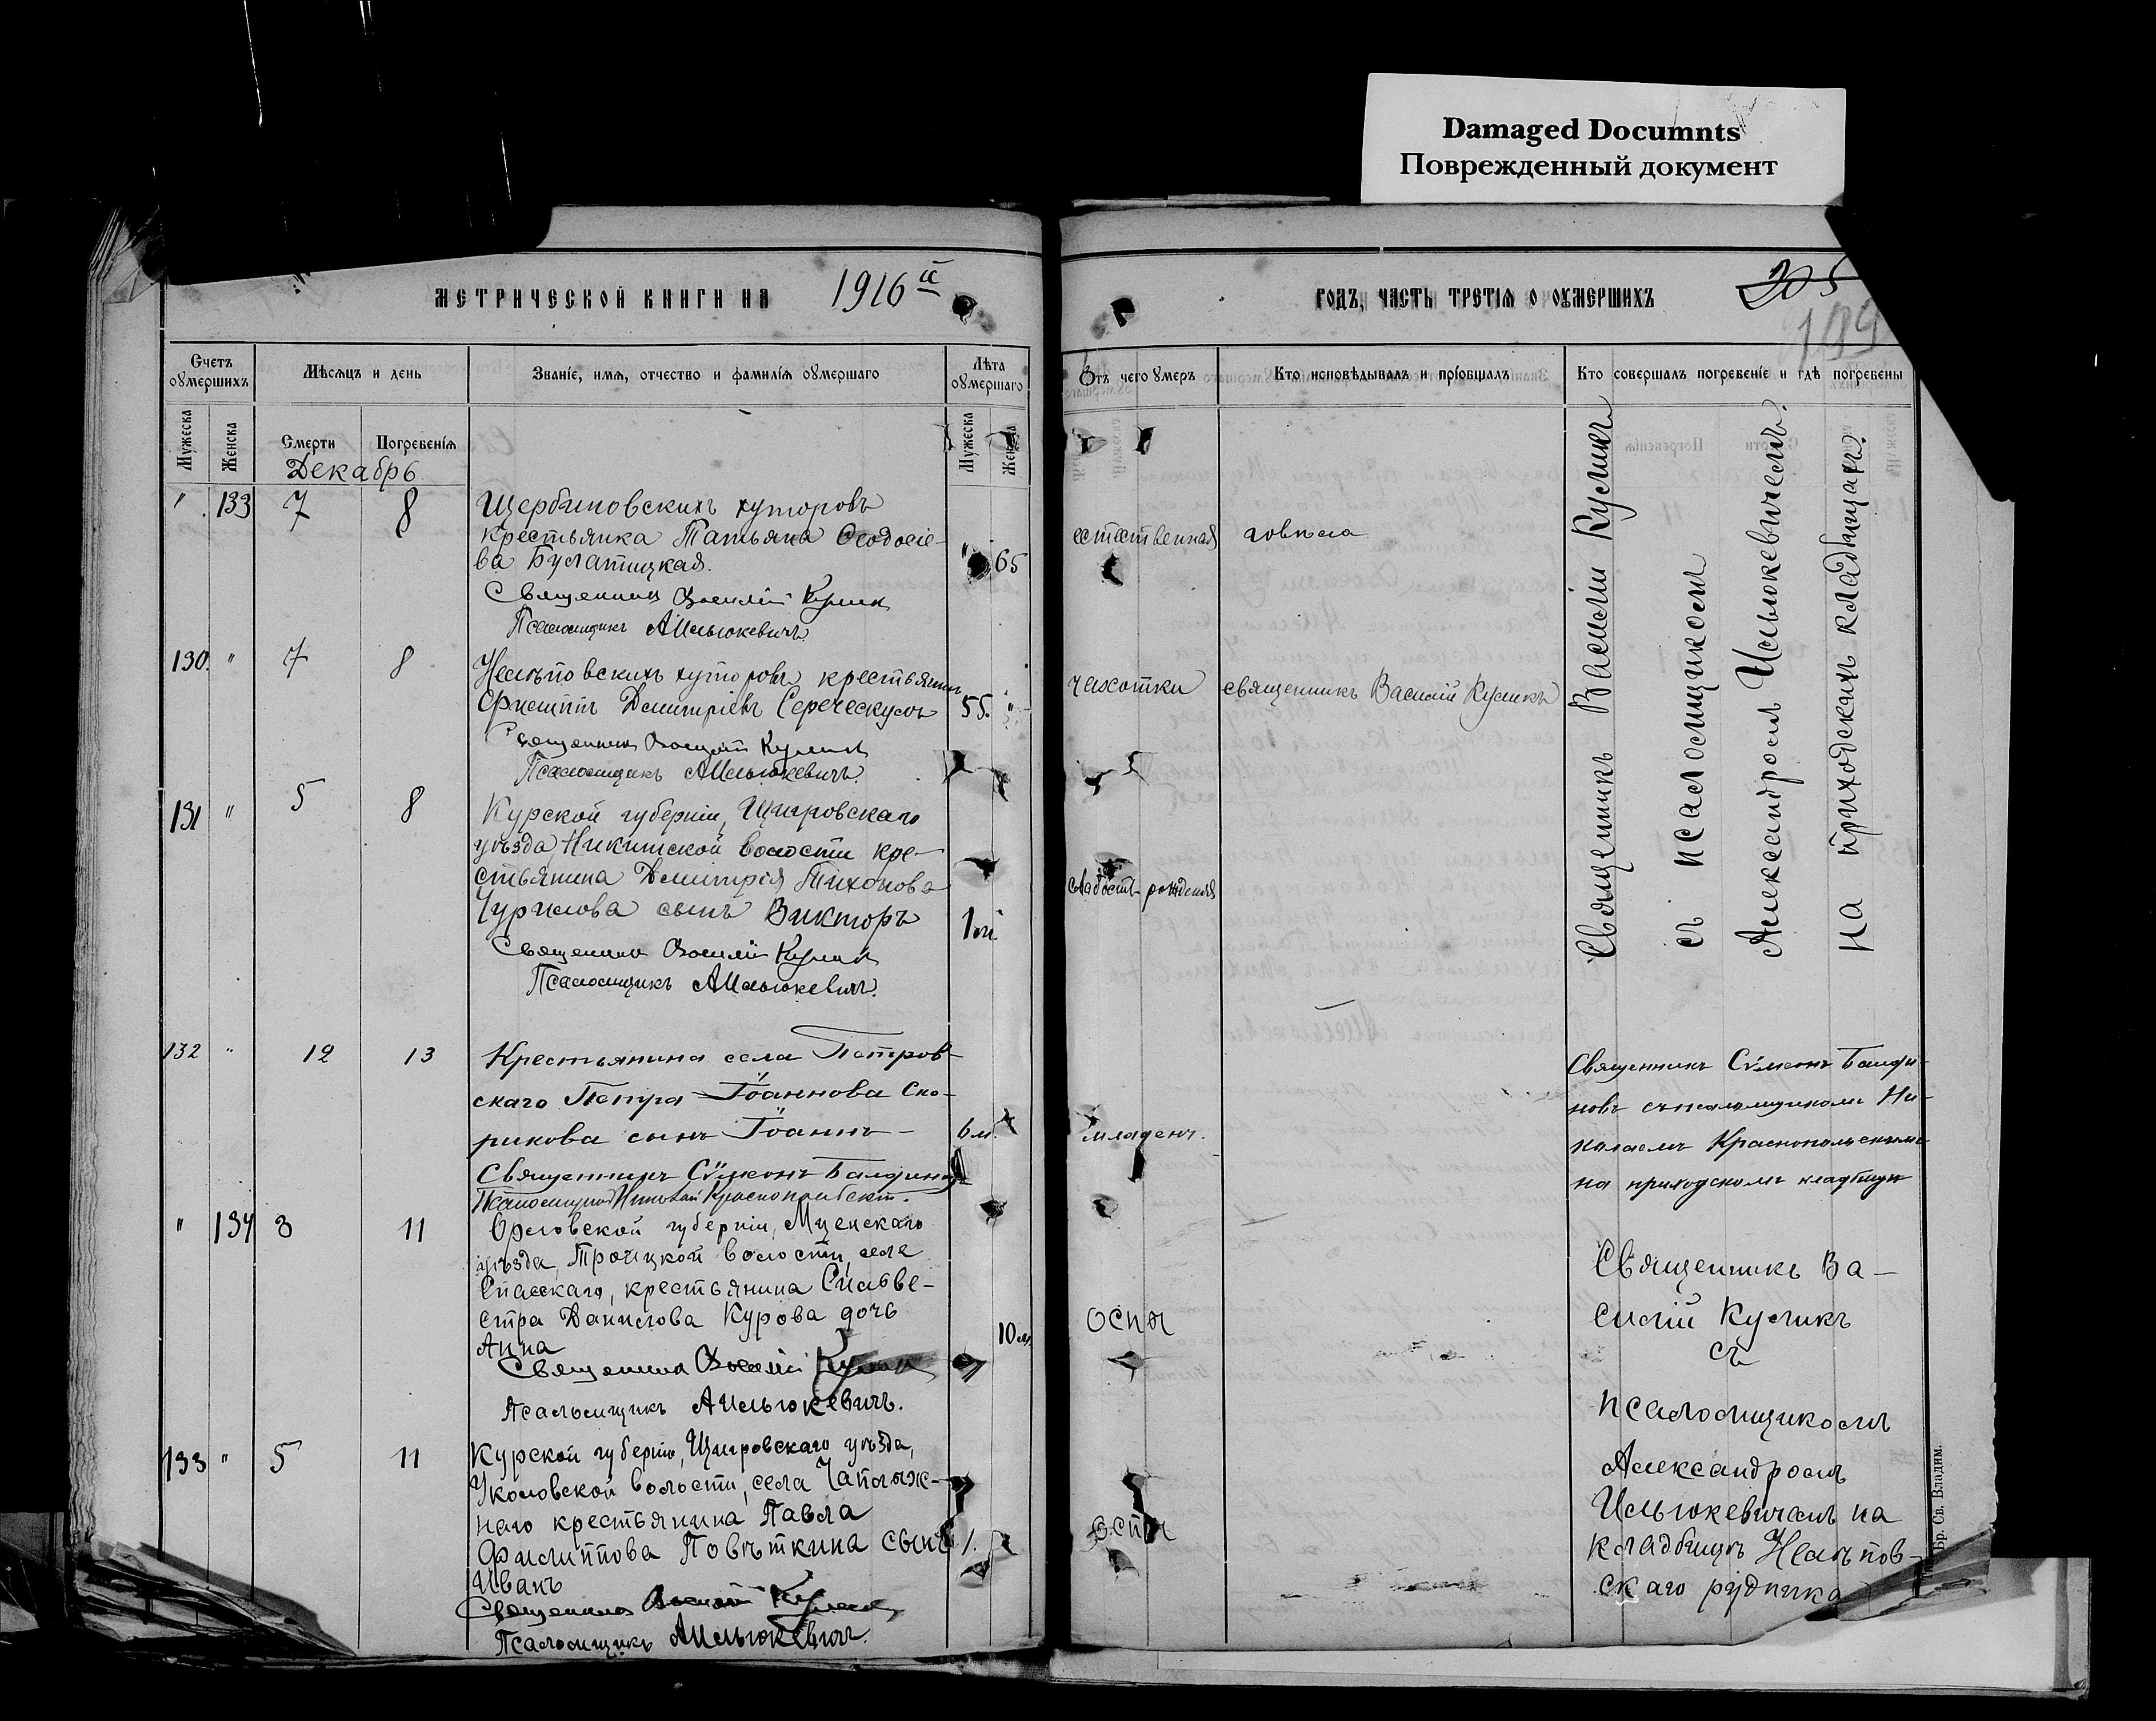 Damaged Documnts
Поврежденный документ
МЕТРИЧЕСКОЙ КНИГИ НА 1916 й
ГОДЪ, ЧАСТЬ ТРЕТІЯ О ОУМЕРШИХЪ
205
Счетъ оумершихъ
Мѣсяцъ и день
Званіе, имя, отчество и фамилія оумершаго
Лѣта оумершаго
Отъ чего умеръ
Кто исповѣдывалъ и пріобщалъ
Кто совершалъ погребеніе и гдѣ погребены
Мужеска
Женска
Смерти
Погребенія
Мужеска
Женска
Декабрь
" 133 7 8 Щербиновскихъ хуторовъ
крестьянка Татьяна Ѳеодосіе-
ва Булатицкая. " 65 естественная
Священникъ Василій Куликъ
Псаломщикъ А Ильюкевичъ.
130. " 7 8 Нелѣповскихъ хуторовъ крестьянинъ
Димитріевъ 55. " чахотки священникъ Василій Куликъ
Священникъ Василій Куликъ
Псаломщикъ А Ильюкевичъ.
131 " 5 8 Курской губерніи, Щигровскаго
уѣзда Никитской волости кре-
стьянина Димитрія Тихонова
Чурилова сынъ Викторъ 1 м. слабость рожденія
Священникъ Василій Куликъ
Псаломщикъ А Ильюкевичъ.
Священникъ Василій Куликъ
съ псаломщикомъ
Александромъ Ильюкевичемъ.
на приходскихъ кладбищахъ.
132 " 12 13 Крестьянина села Петров-
скаго Петра Іоаннова Ско-
рикова сынъ Іоаннъ - 6 м. младенч.
Священникъ Сѵмеонъ
Псаломщикъ Николай Краснопольскій.
Священникъ Сѵмеонъ
съ псаломщикомъ Ни-
колаемъ Краснопольскимъ
на приходскомъ кладбищѣ
" 134 8 11 Орловской губерніи, Мценскаго
уѣзда, Троицкой волости, села
Спасскаго, крестьянина Сильве-
стра Данилова Курова дочь
Анна 10 м. оспы
Священникъ Василій Куликъ
Псаломщикъ А Ильюкевичъ.
133 " 5 11 Курской губерніи, Щигровскаго уѣзда,
Уколовской волости, села
крестьянина Павла
Филиппова Повѣткина сынъ 1. оспы
Иванъ
Священникъ Василій Куликъ
Псаломщикъ А Ильюкевичъ.
Священникъ Ва-
силій Куликъ
съ
псаломщикомъ
Александромъ
Ильюкевичемъ на
кладбищѣ Нелѣпов-
скаго рудника
Бр. Св. Владим.